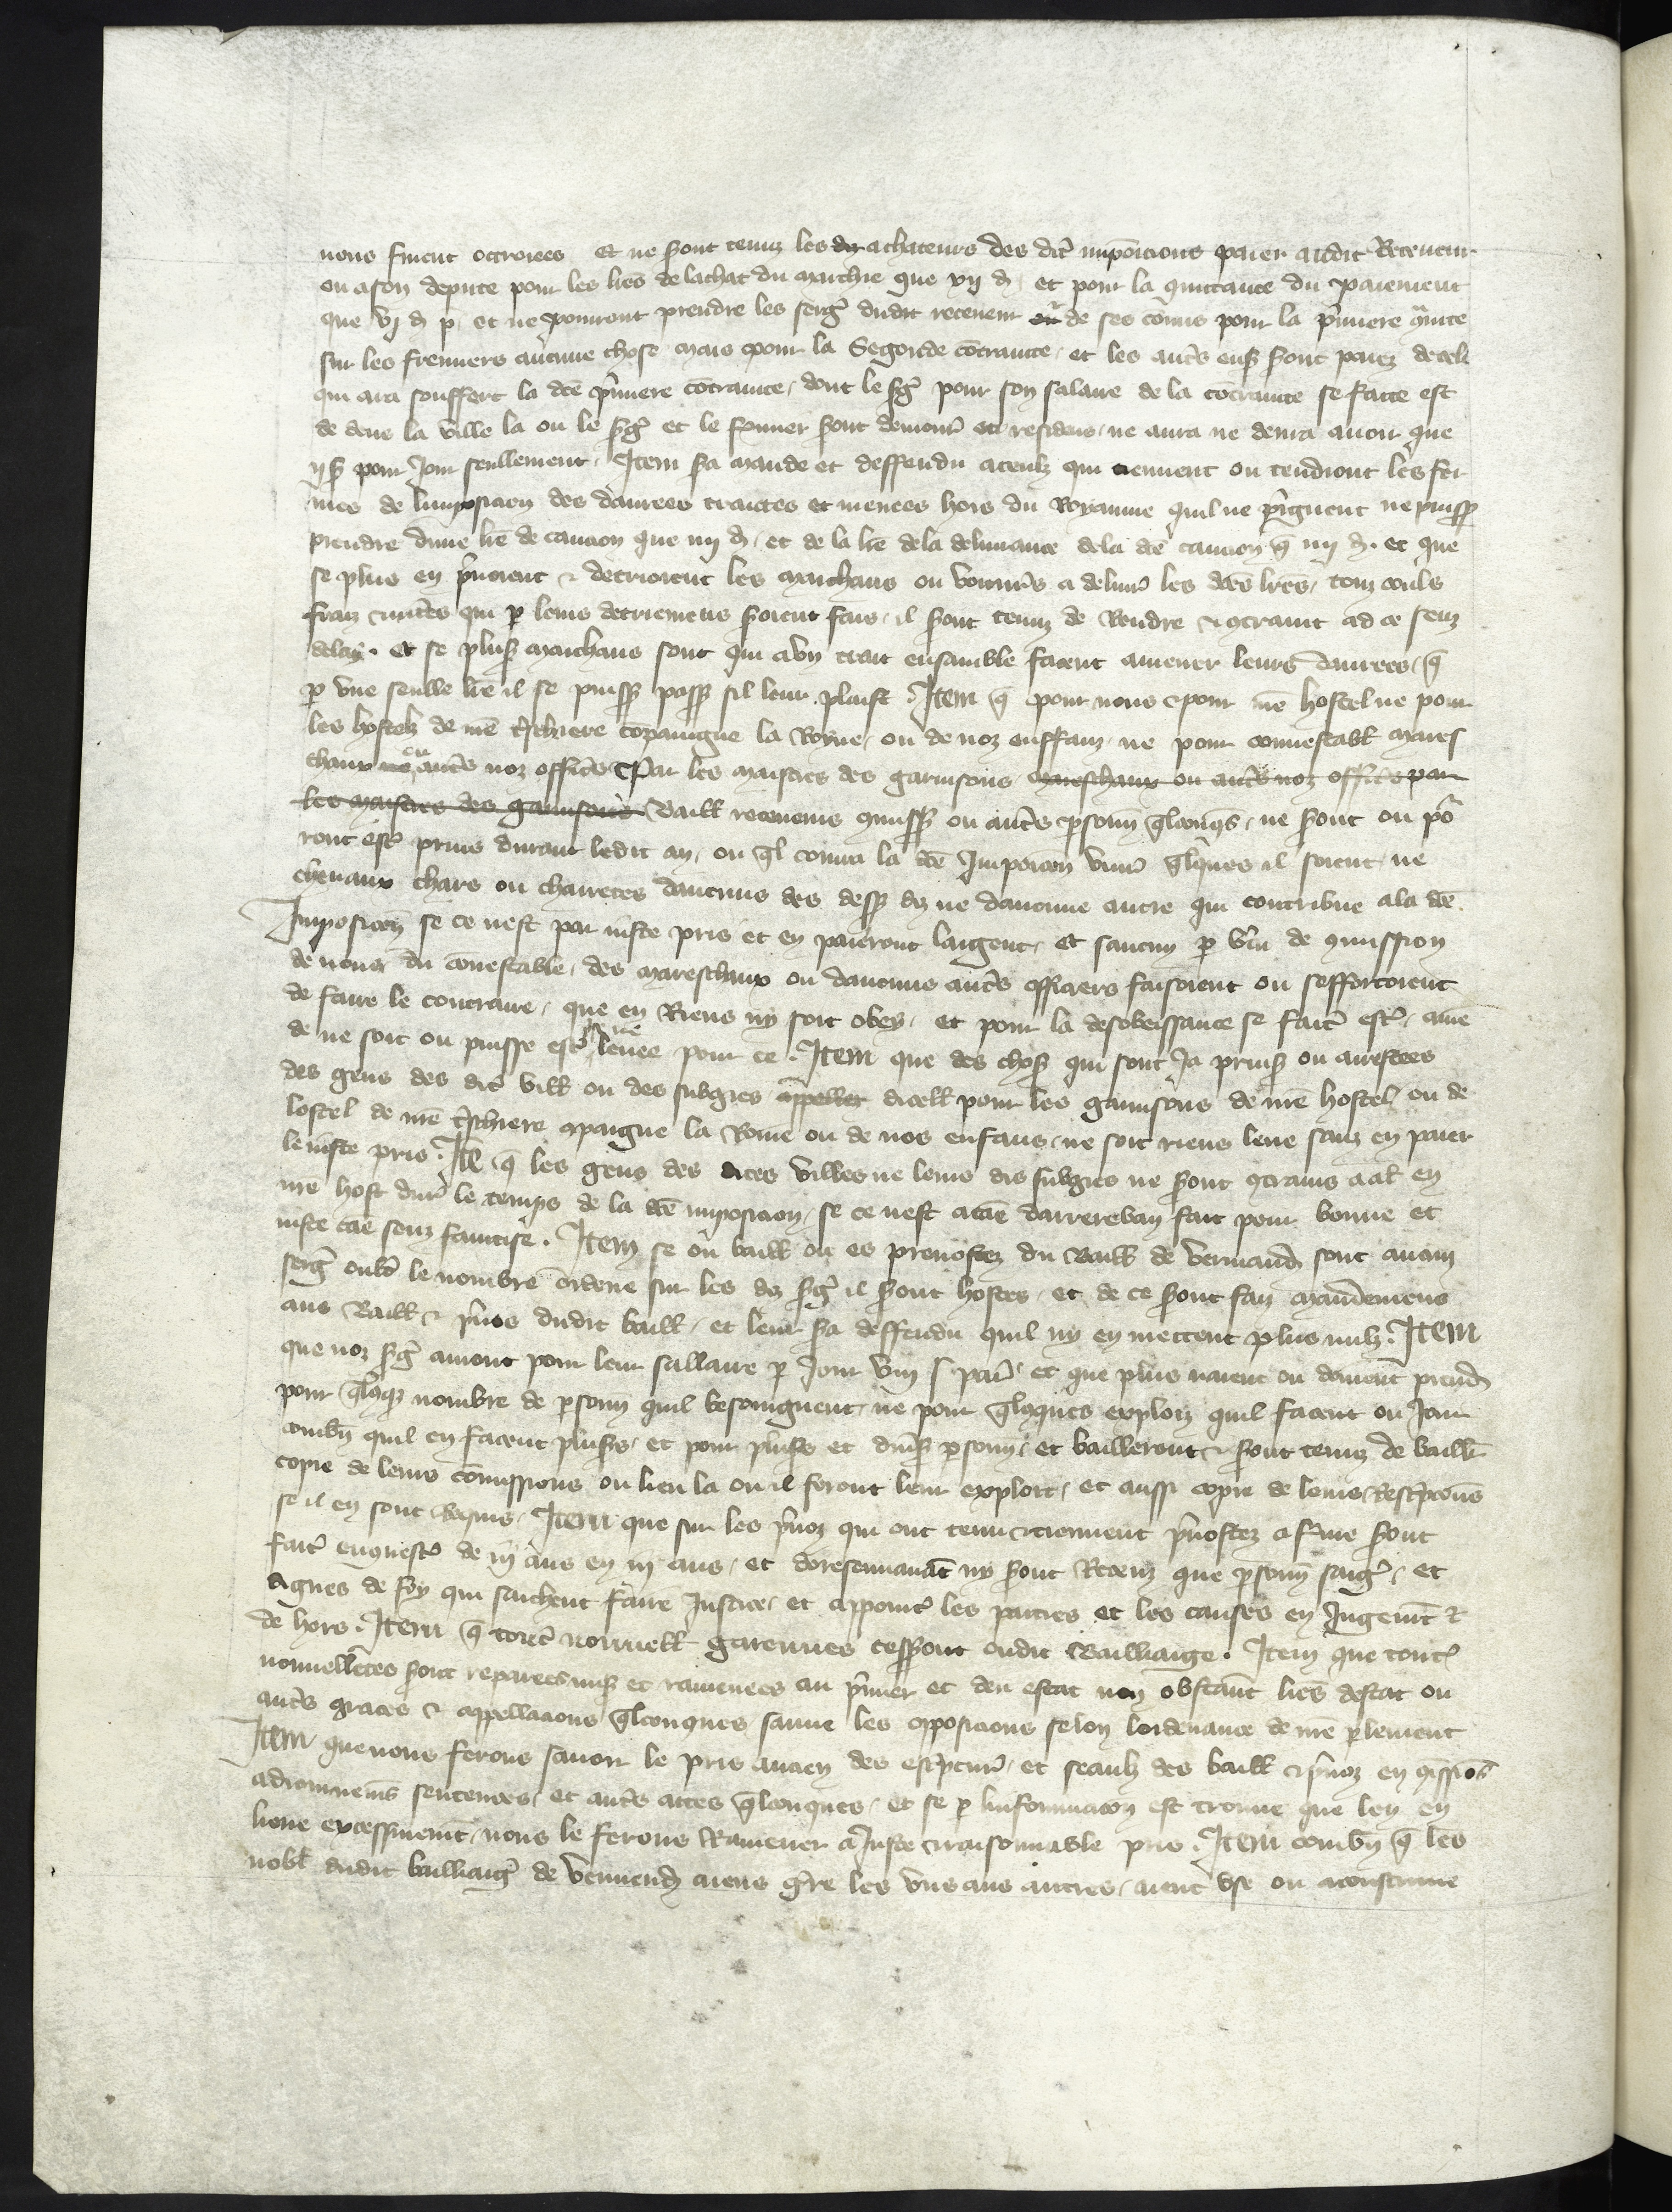 nous furent octroiees et ne seront tenuz les achateurs des dictes imposicions paier audit Receveur
ou a son depute pour les lres de lachat du marchie que xij d. et pour la quittance du paiement
que vj d. p. et ne pourront prendre les serg dudit receveur de ses comis pour la pmiere contrainte
sur les fermiers aucune chose mais pour la Segonde contrainte et les autres ens seront paiez de cel
qui ara souffert la dce pmiere contrainte dont le serg pour son salaire de la contrainte se faicte est
dedens la ville la ou le serg et le fermier seront demour et residens ne aura ne devra avoir que
ij s. pour jour seullement. Item sera mande et deffendu a ceulx qui tiennent ou tendront les fer
mes de limposicion des danrees traictes et menees hors du Royaume quil ne preignent ne puiss
prendre dune lre de caucion que iiij d. et de la lre de la delivrance de la dce caucion q iiij d. et que
se plus en prenoient et detrioient les marchans ou voicturs a delivrer les dces lres touz coulx
fraiz et mises qui p leurs detriemens seroient fais il seront tenuz de Rendre et contraint ad ce senz
delay. Et se plusrs marchans sont qui avn trait ensamble facent amener leurs danrees q
p vne seulle lre il se puiss pass sil leur plaist. Item q pour nous et pour nre hostel ne pour
les hostelz de nre treschiere compaingne la Royne ou de noz enffanz ne pour connestabl mares
chaux ou autres noz offices Par les maistres des garnisons mareschaux ou autres noz offices par
les maistres des garnisons Baill receveurs commiss ou autres psonn qlconqs ne seront ou por
ront estre prins durant ledit an ou ql courra la dce Imposicion vivres qlques il soient ne
chevaux chars ou charretes daucuns des dess diz ne daucune autre qui contribue a la dce
Imposicion se ce nest par juste pris et en paieront largent. et saucun p vertu de commission
de nous du connestable des mareschaux ou daucuns autres officiers faisoient ou sefforcoient
de faire le contraire que en Riens ny soit obey. et pour la desobeissance se faicte estoit amen
de ne soit ou puisse estre levee pour ce. Item que des choses qui sont Ja prinses ou arrestees
des gens des dictes vill ou des subgies appellez dicell pour les garnisons de nre hostel ou de
lostel de nre treschiere compaigne la Royne ou de nos enfans ne soit riens leve sanz en paier
le juste pris. Item q les gens des dites villes ne leurs dis subgies ne seront contrains a aler en
nre host durant le temps de la dce imposicion se ce nest a cause darrereban fait pour bonne et
juste cause senz faintise. Item se ou baill ou es prevostez du Baill de vermand sont aucuns
serg oultre le nombre ordene sur les diz serg il seront hostes et de ce seront faiz mandemens
aus Baill et pvos dudit baill et leur sera deffendu quil ny en mettent plus nulz. Item
que noz serg auront pour leur sallaire p Jour viij s. par. et que plus naient ou doivent prendre
pour qlconqs nombre de psonn quil besoingnent ne pour qlconques exploiz quil facent ou Jour
combien quil en facent plusrs et pour plusrs et diverses psonn et bailleront et seront tenuz de bailler
copie de leurs commissions ou lieu la ou il feront leur exploit et aussi copie de leurs Rescripcions
se il en sont Requis. Item que sur les pvoz qui ont tenu et tiennent pvostez a ferme seront
faictes enquestes de iij ans en iij ans et doresenavant ny seront Receuz que psonn saiges et
dignes de foy qui saichent faire justice et appointer les parties et les causes en Jugement et
de hors. Item q toutes nouvell garennes cesseront oudit Bailliaige. Item que toutes
nouvelletes soient repareees mises et ramenees au pmier et deu estat non obstant lres destat ou
autres graces et appellacions qlconques sauve les oposicions selon lordenance de nre parlement
Item que nous ferons savoir le pris ancien des escriptures et seaulx des baill et pvoz en commissions
adiornemens sentences et autres actes qlconques et se p linformacion est trouve que len en
lieve excessivement nous le ferons Ramener a Juste et raisonnable pris. Item combien q les
nobles dudit bailliaige de vermendois aiens guerre les vns aus autres aient vse ou acoustume